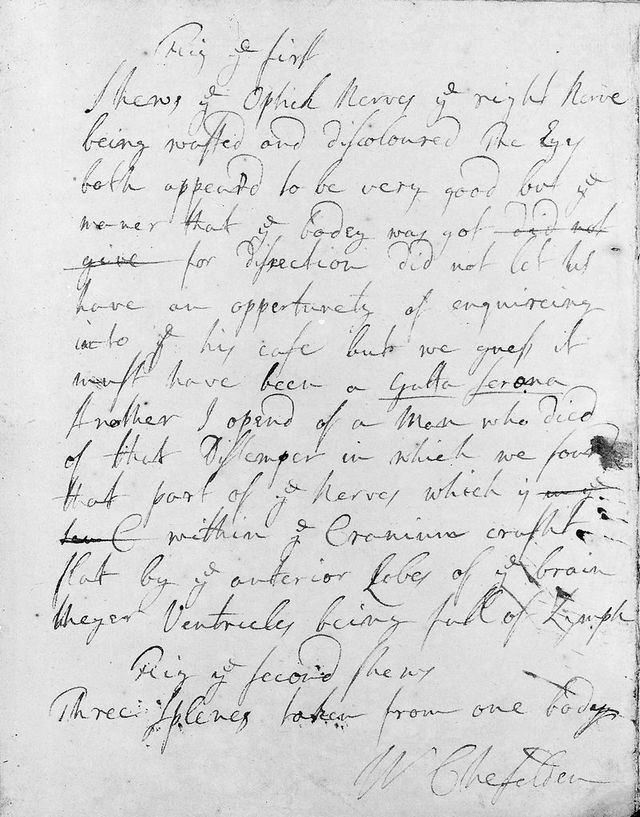 Fig ye first
Shews ye Optick Nerves ye right Nerve
being wasted and discoloured The Eys
both appeard to be very good but ye
maner that ye badey was got did not
give for disection did not let us
have an oppertunety of enquireing
into ye his case but we guess it
must have been a Gutta Serena
Another I opend of a Man who died
of that Distemper in which we foun
that part of ye Nerves which is in ye
within ye Cranium crusht
flat by ye anterior Lobes of ye brain
theyer Ventricles being full of Lymph
Fig ye second shews
Three Spleens taken from one badey
W Cheselden